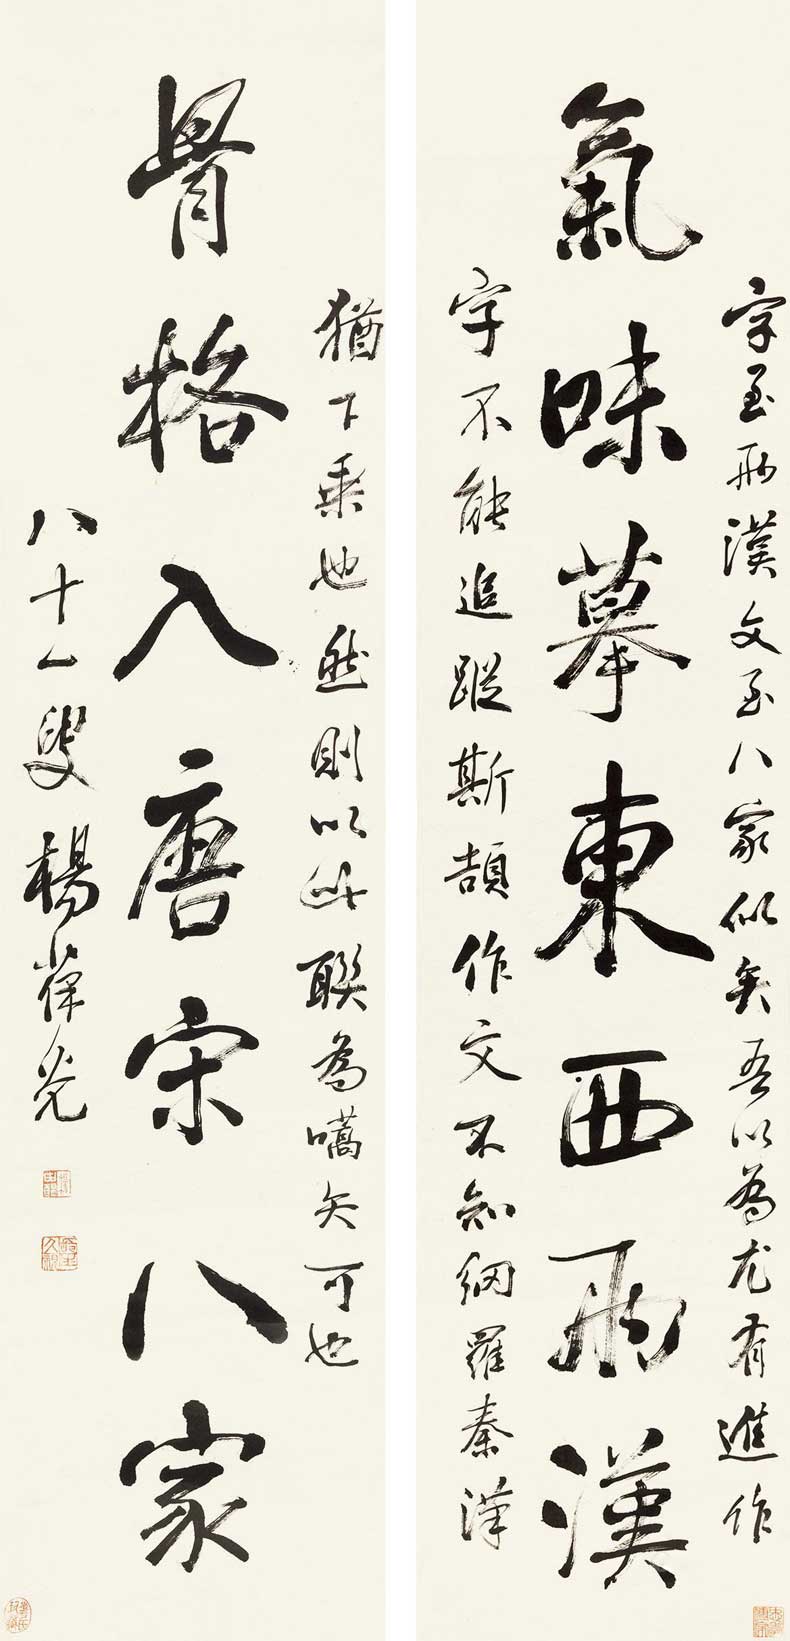 字至兩漢文至八家似矣吾以為尤有進作
氣味摹東西兩漢
字不能追蹤斯頡作文不知網羅秦漢
猶下乘也然則以此聯為嚆矢可也
骨格入唐宋八家
八十一叟楊葆光